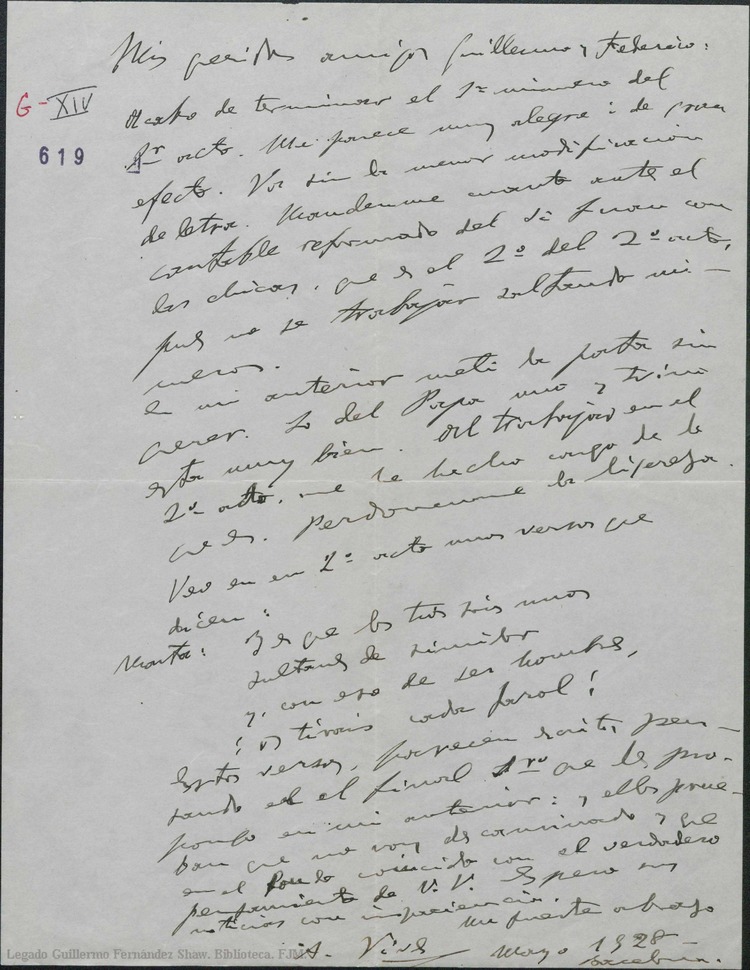 Mis queridos amigos Guillermo y Federico:
G-XIV
619
Acabo de terminar el 1er número del
1er acto. Me parece muy alegre i de gran
efecto. Va sin la menor modificación
de letra. Mandenme cuanto antes el
cantable reformado del 1er final con
las chicas, que es el 2º del 2º acto,
pues no se trabajar saltando nú-
meros.
En mi anterior metí la pata sin
querer. Lo del Papa uno y trino
esta muy bien. Al trabajar en el
2º acto, me he hecho cargo de lo
que es. Perdonenme la ligereza.
Veo en en 2º acto unos versos que
dicen:
Marta: Y es que los tres sois unos
sultanes de similor
y, con eso de ser hombres,
¡os tirais cada farol!
Estos versos, parecen escritos pen-
sando en el final 1ro que les pro-
pongo en mi anterior: y ellos prue-
ban que no voy descaminado y que
en el fondo coincido con el verdadero
pensamiento de V.V. Espero sus
noticias con impaciencia.
Un fuerte abrazo
A. Vives
Mayo 1928
Barcelona.
Legado Guillermo Fernández Shaw. Biblioteca. FJM.